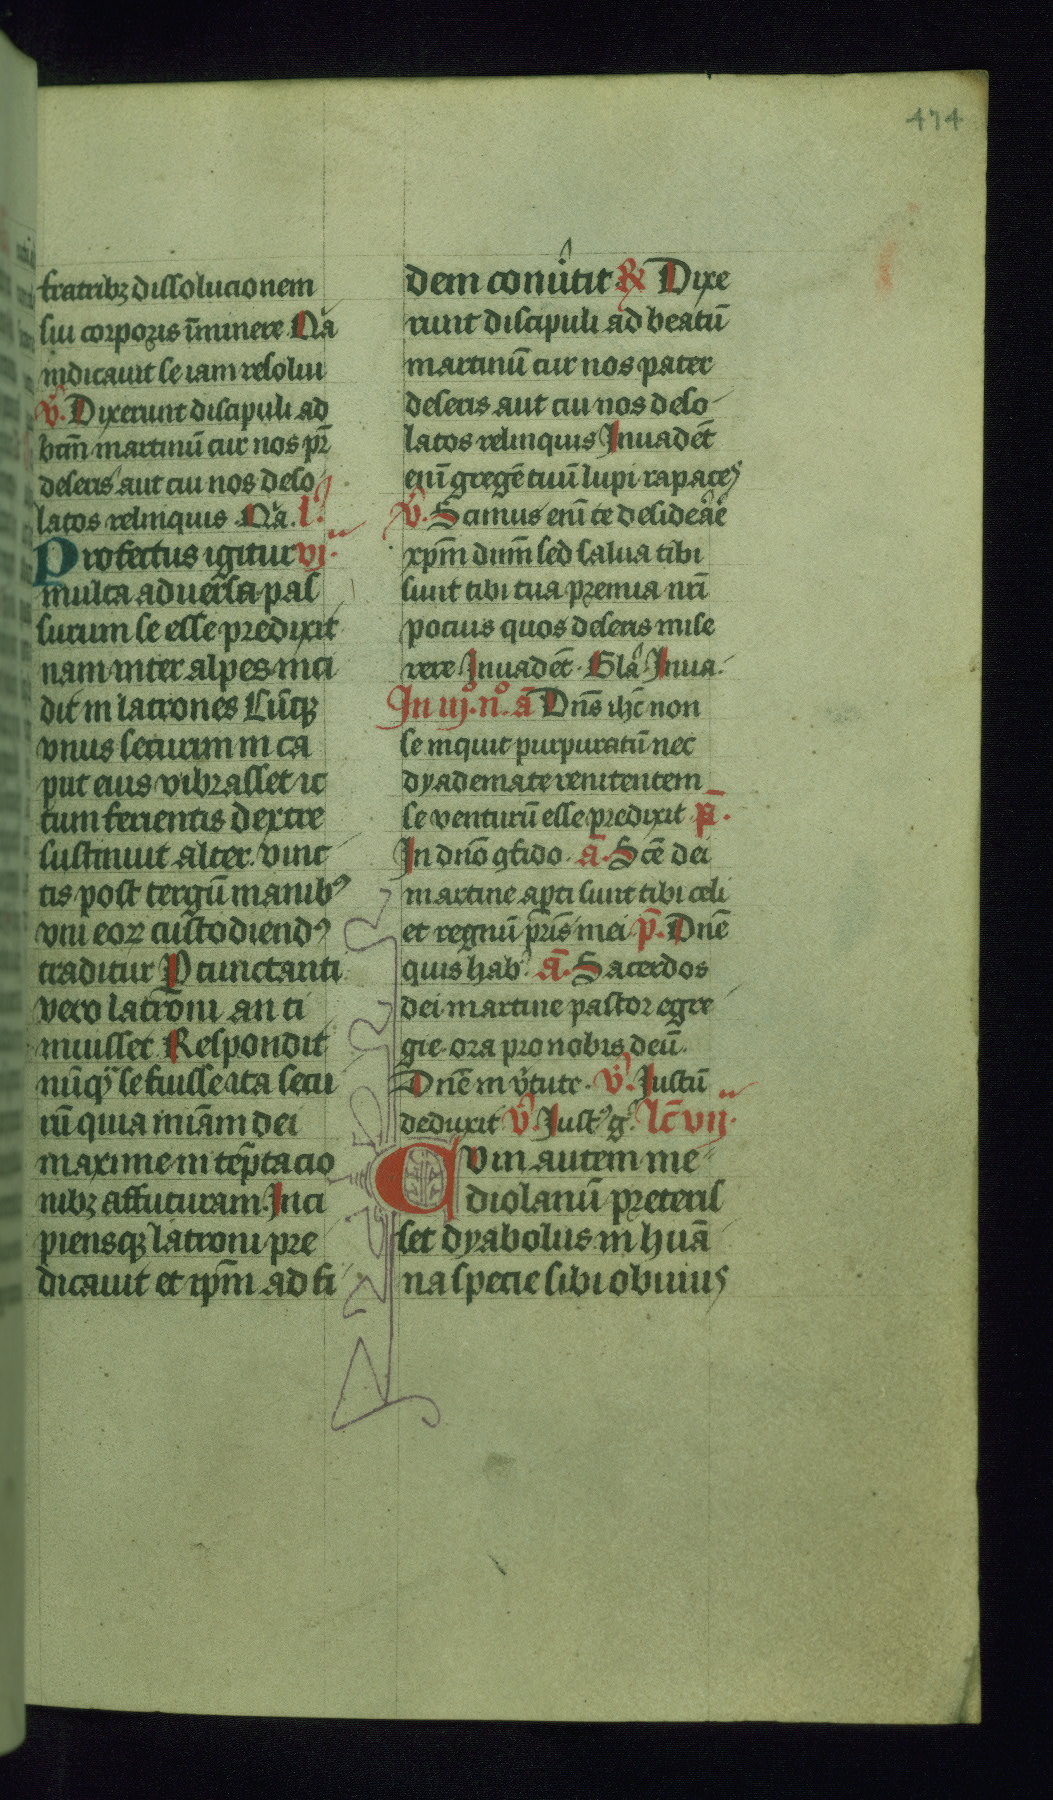 474
fratribꝫ dissolucionem
sui corporis īminere Na᷒
indicauit se iam resolui
V̾. Dixerunt discipuli ad
btm̄ martinū cur nos pr̄
deseris aut cui nos deso
latos relinquis Na᷒. l.
Profectus igitur vj
multa aduersa pas
surum se esse predixit
nam inter alpes inci
dit in latrones Cūqꝫ
vnus securim in ca
put eius vibrasset ic
tum ferientis dextre
sustinuit alter. vinc
tis post tergū manibꝰ
vni eoꝝ custodiendꝰ
traditur Percunctanti
vero latroni an ti
muisset Respondit
nūqᷓ se fuisse ita secu
rū quia mīam dei
maxime in tēptacio
nibꝫ affuturam Inci
piensqꝫ latroni pre
dicauit et ip̄m ad fi
dem conu̾tit R̸ Dixe
runt discipuli ad beatū
martinū cur nos pater
deseris aut cui nos deso
latos relinquis Inuadēt
enī gregē tuū lupi rapaces
V̾. Scimus enī te desidēare
xp̄m dūm sed salua tibi
sunt tibi tua premia nr̄i
pocius quos deseris mise
rere Inuadēt. Gla᷒ Inua.
In iijº. nº. ā Dn̄s ih̄c non
se inquit purpuratū nec
dyademate renitentem
se venturū esse predixit p̄.
In dn̄o ꝯfido. ā. Scē dei
martine apti sunt tibi celi
et regnū pr̄is mei p̄. Dn̄e
quis hab᷒ ā. Sacerdos
dei martine pastor egre
gie ora pro nobis deū.
Dn̄e in v̾tute. V̾. Iustū
deduxit V̾. Iustꝰ g᷒. lc̄ vij.
Cvm autem me
diolanū preteris
set dyabolus in huā
na specie sibi obuius